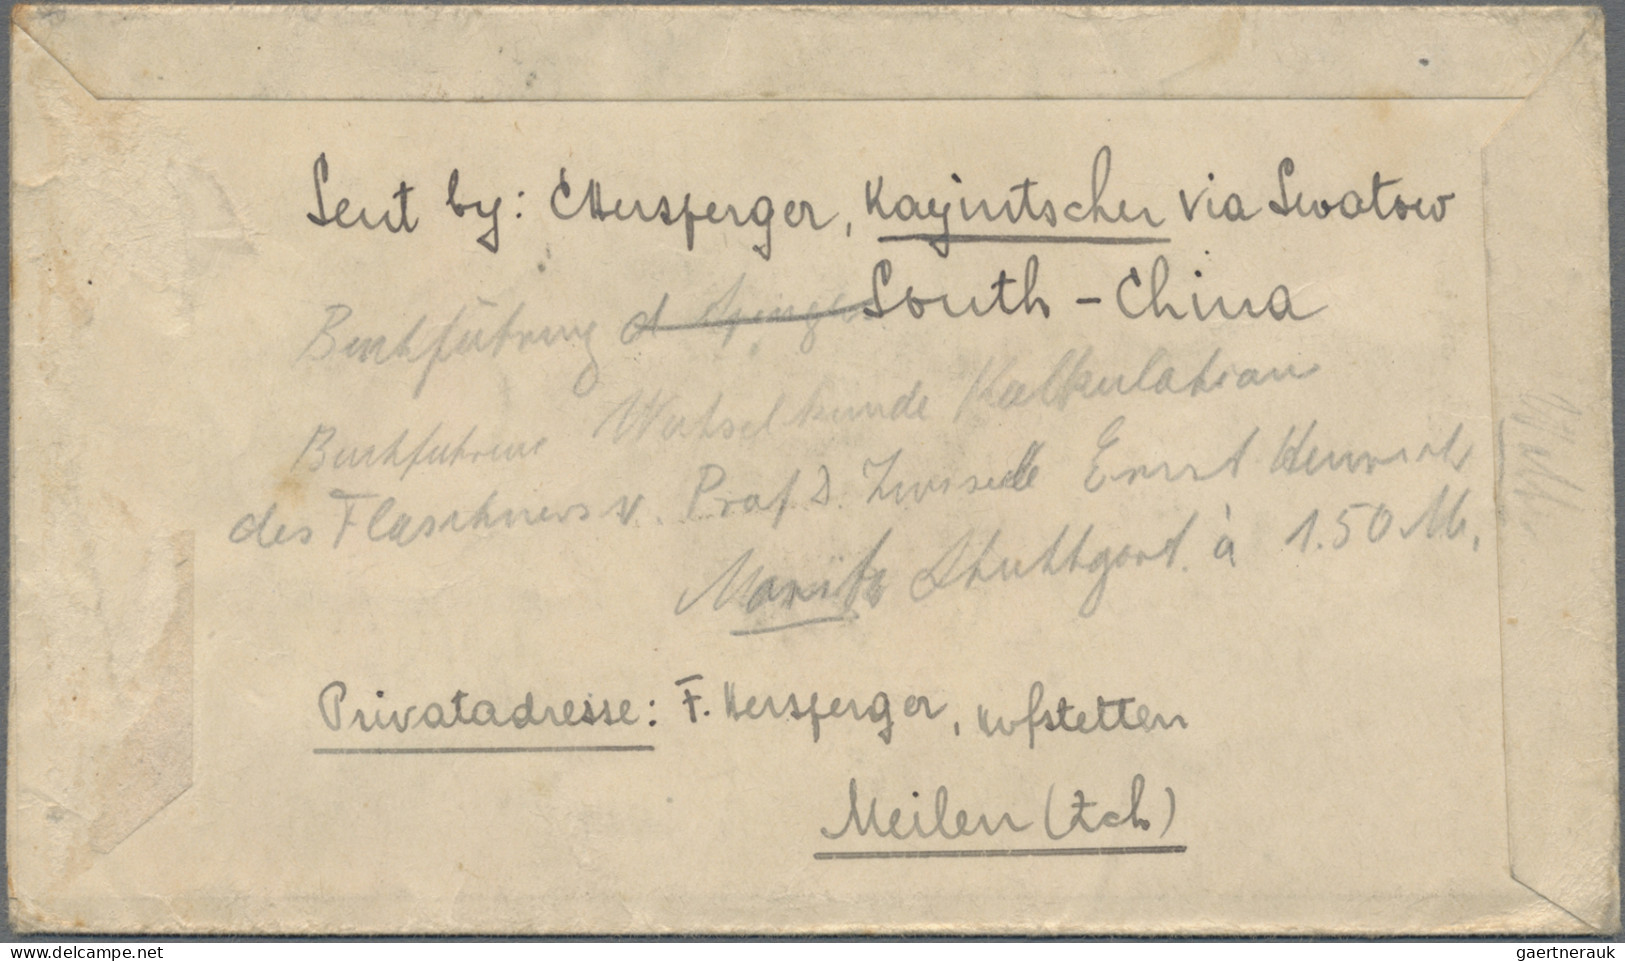 Sent by: EHersperger, Kayintscheu via Swatow
South - China
Buchführung d
Buchführung Wechselkunde Kalkulation
des Flaschners v. Prof. D. Ernst Heinrich
Moritz Stuttgart à 1.50 M.
Privatadresse: F. Hersperger, Hofstetten
Meilen (Zch)
www.delcampe.net
gaertnerauk